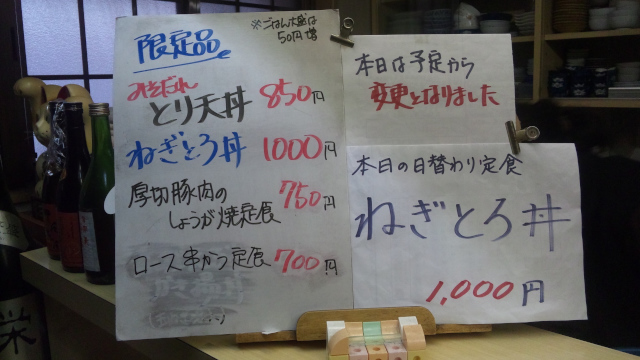 限定品
※ごはん大盛は
50円増
みそだれ
とり天丼 850円
ねぎとろ丼 1000円
厚切豚肉の
しょうが焼定食 750円
ロース串かつ定食 700円
本日は予定から
変更となりました
本日の日替わり定食
ねぎとろ丼
1,000円
栄